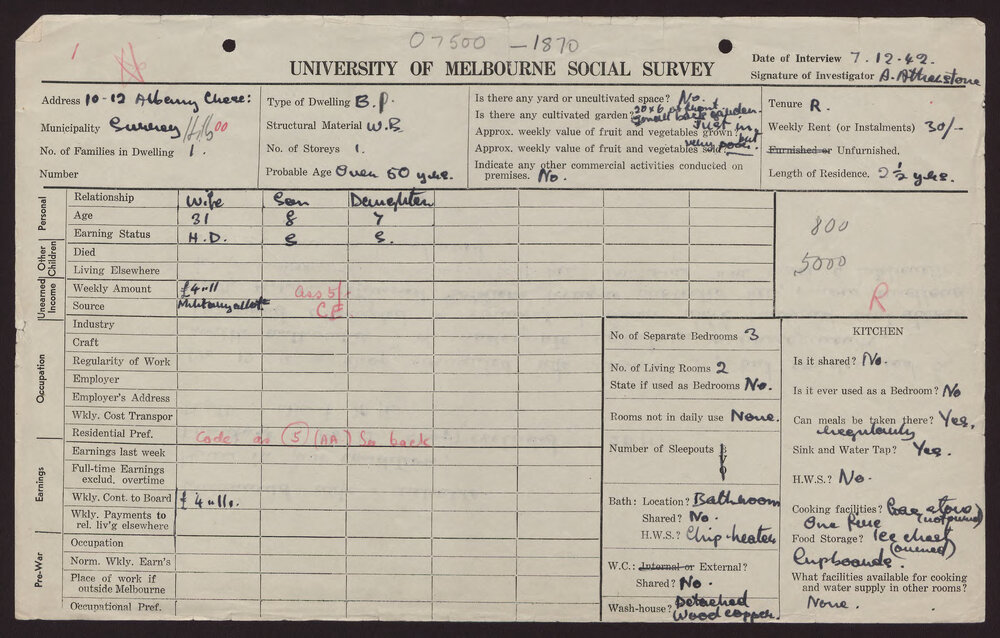 07500 - 1870
1
UNIVERSITY OF MELBOURNE SOCIAL SURVEY
Date of Interview 7.12.42.
Signature of Investigator A.
Address 10-12 Albany
Municipality Surrey Hills 00
No. of Families in Dwelling 1.
Number
Type of Dwelling B.P.
Structural Material W.B
No. of Storeys 1.
Probable Age Over 50 yrs.
Is there any yard or uncultivated space? No.
Is there any cultivated garden? 20x6 at front
Small back garden.
Approx. weekly value of fruit and vegetables grown? Just in, but
Approx. weekly value of fruit and vegetables sold? very poor.
Indicate any other commercial activities conducted on
premises. No.
Tenure R.
Weekly Rent (or Instalments) 30/-
Furnished or Unfurnished.
Length of Residence. 2 ½ yrs.
Personal
Relationship Wife Son Daughter
Age 31 8 7
Earning Status H.D. S S.
Other Children
Died
Living Elsewhere
Unearned Income
Weekly Amount £4"11 Ass 5/-
Source Military allot. C.E
800
5000
R
Occupation
Industry
Craft
Regularity of Work
Employer
Employer's Address
Wkly. Cost Transpor
Residential Pref. Code as 5 (AA) See back
Earnings
Earnings last week
Full-time Earnings
exclud. overtime
Wkly. Cont. to Board £4"11s.
Wkly. Payments to
rel. liv'g elsewhere
Pre-War
Occupation
Norm. Wkly. Earn's
Place of work if
outside Melbourne
Occupational Pref.
No of Separate Bedrooms 3
No. of Living Rooms 2
State if used as Bedrooms No.
Rooms not in daily use None.
Number of Sleepouts
Bath: Location? Bathroom
Shared? No.
H.W.S.? Chip-heater
W.C.: Internal or External?
Shared? No.
Wash-house? Detached
Wood copper.
KITCHEN
Is it shared? No.
Is it ever used as a Bedroom? No
Can meals be taken there? Yes,
regularly
Sink and Water Tap? Yes.
H.W.S.? No.
Cooking facilities? Gas stove
One fire
Food Storage? Ice chest
(owned)
Cupboards.
What facilities available for cooking
and water supply in other rooms?
None.